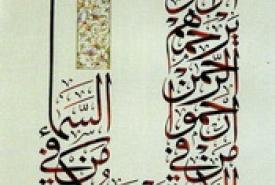 يرحمهم
الرحمن
ارحموا
من في
من
في
السماء